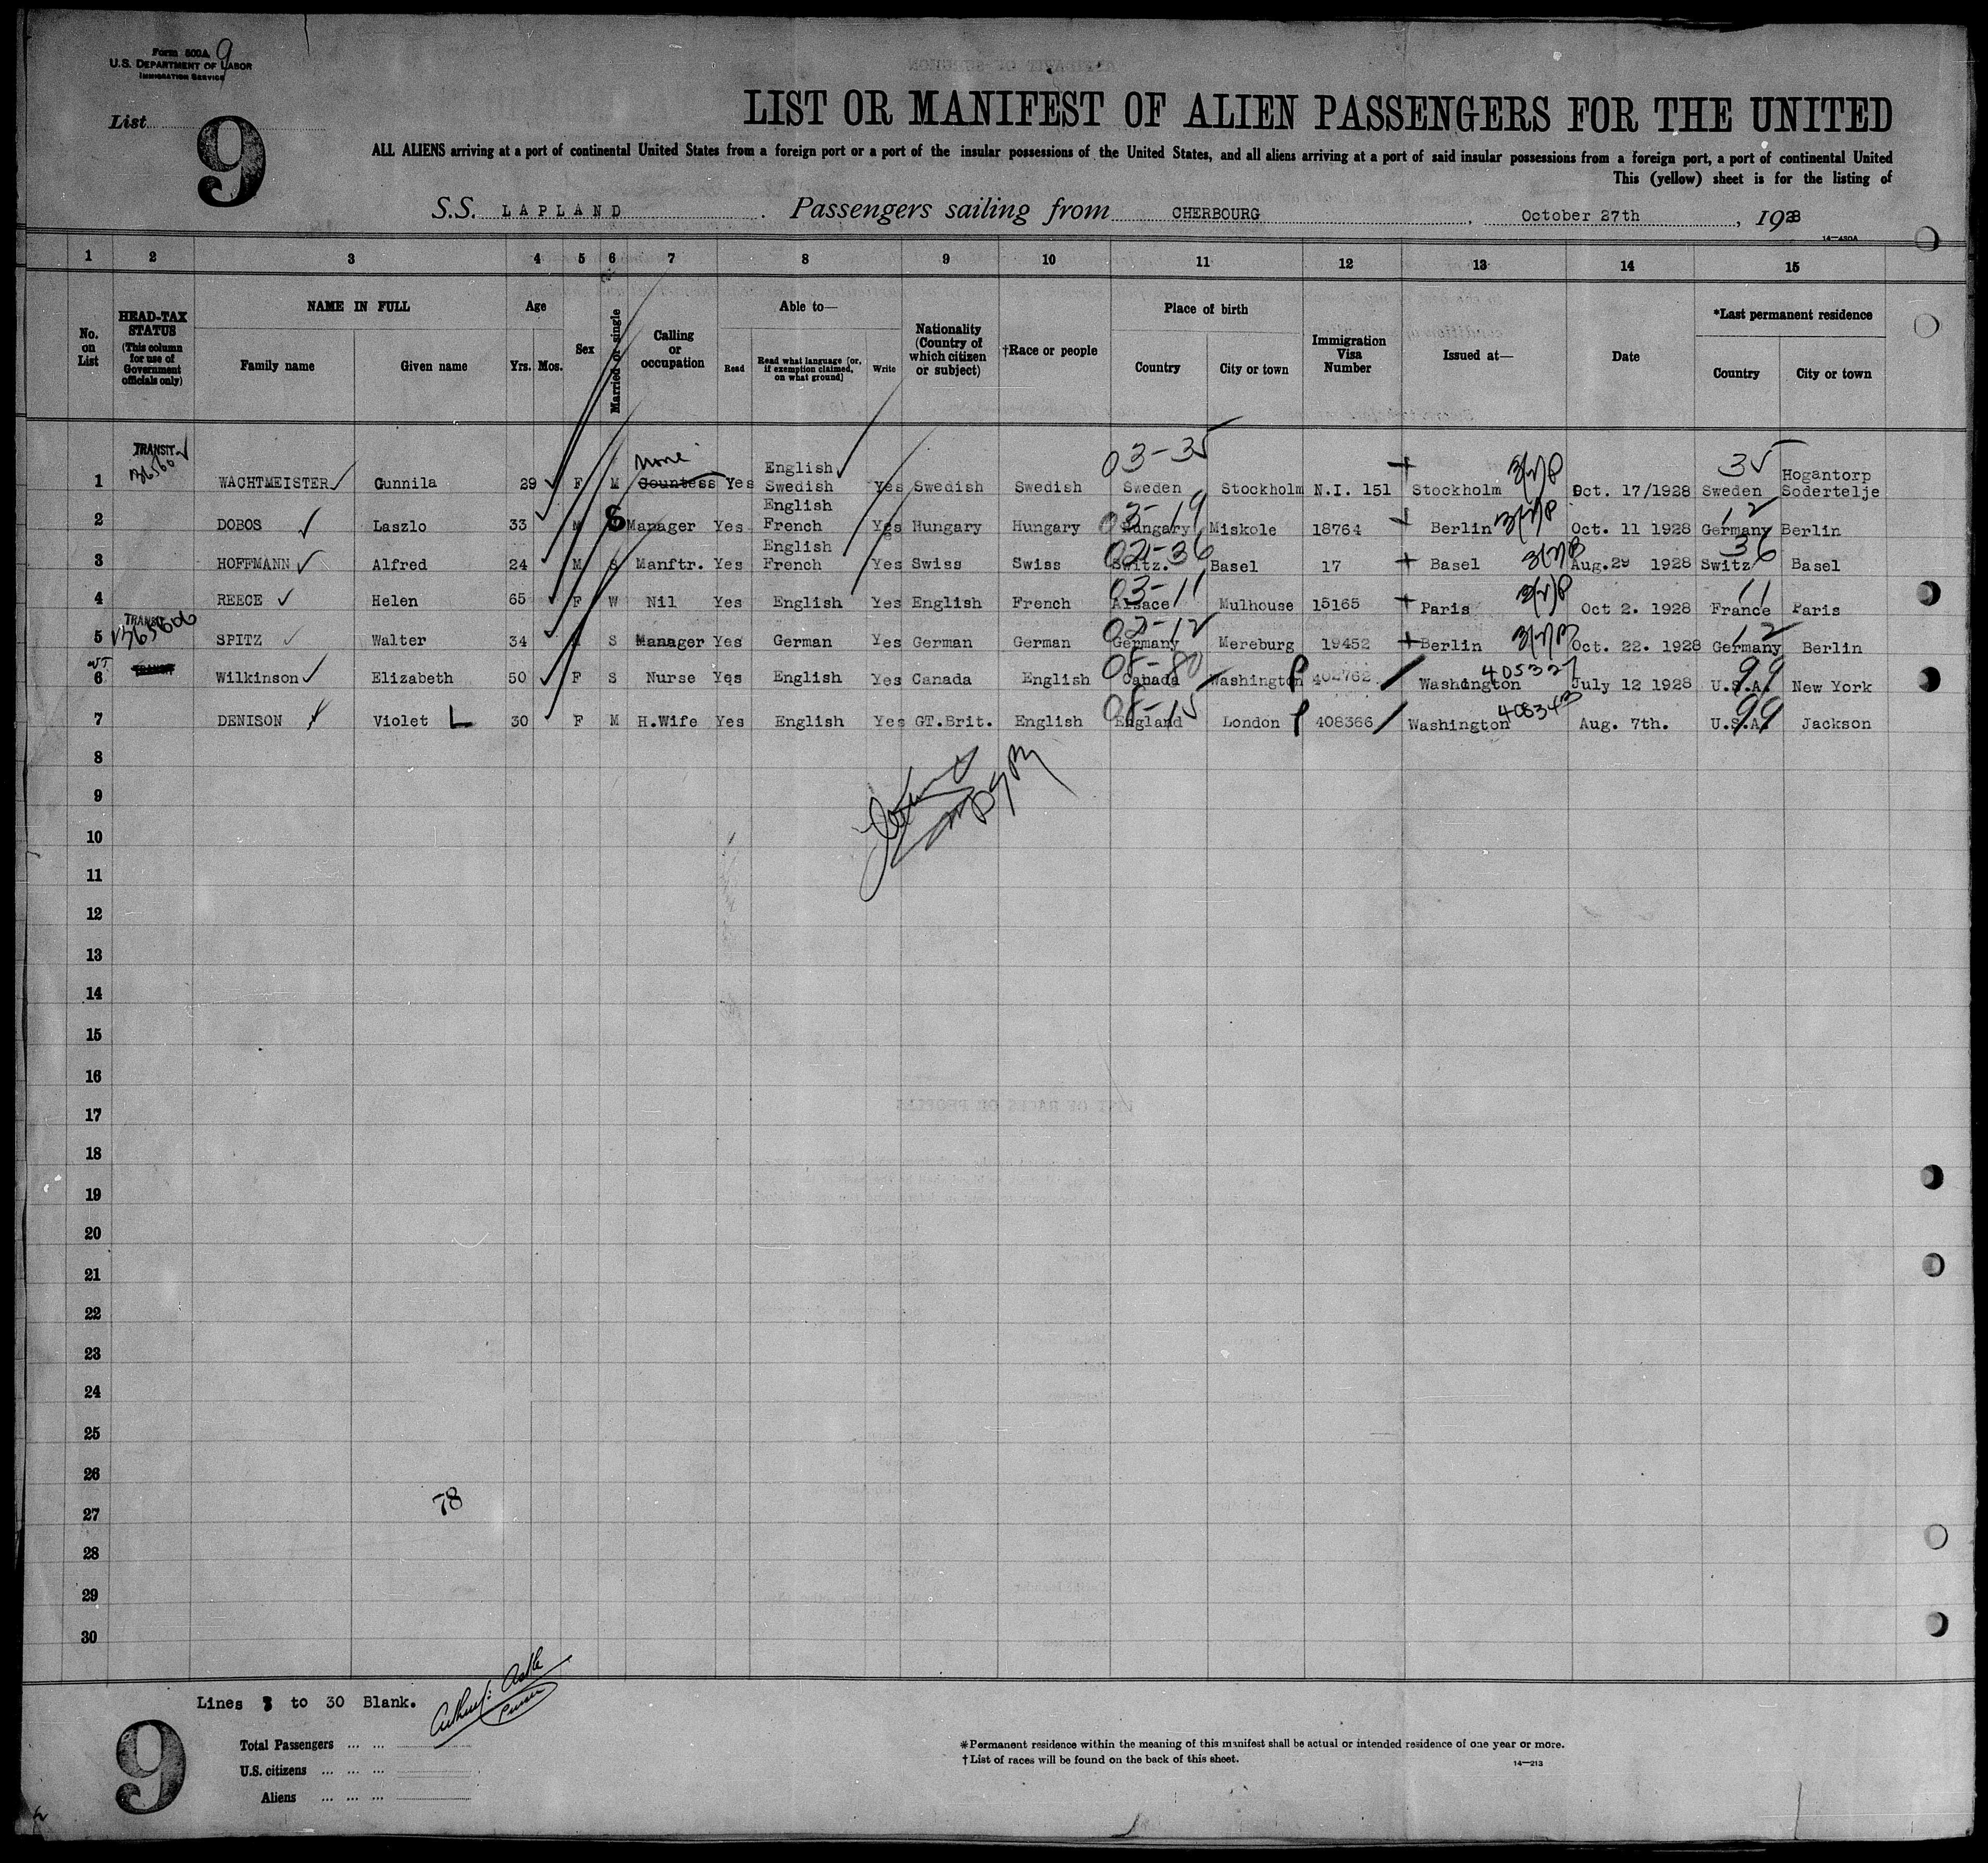 Form 500A 9
U.S. DEPARTMENT OF LABOR
IMMIGRATION SERVICE
List 9
LIST OR MANIFEST OF ALIEN PASSENGERS FOR THE UNITED
ALL ALIENS arriving at a port of continental United States from a foreign port or a port of the insular possessions of the United States, and all aliens arriving at a port of said insular possessions from a foreign port, a port of continental United
This (yellow) sheet is for the listing of
S.S. LAPLAND. Passengers sailing from CHERBOURG, October 27th, 1928
14-480A
1 2 3 4 5 6 7 8 9 10 11 12 13 14 15
No. on List
HEAD-TAX STATUS (This column for use of Government officials only)
NAME IN FULL
Family name Given name
Age
Yrs. Mos.
Sex
Married or single
Calling or occupation
Able to—
Read Read what language [or, if exemption claimed, on what ground] Write
Nationality (Country of which citizen or subject)
†Race or people
Place of birth
Country City or town
Immigration Visa Number
Issued at—
Date
*Last permanent residence
Country City or town
TRANSIT none 03-35 35
1 WACHTMEISTER Gunnila 29 F M Countess Yes English Swedish Yes Swedish Swedish Sweden Stockholm N.I. 151 Stockholm Oct. 17/1928 Sweden Hogantorp Sodertelje
03-19 12
2 DOBOS Laszlo 33 M S Manager Yes English French Yes Hungary Hungary Hungary Miskole 18764 Berlin Oct. 11 1928 Germany Berlin
36
3 HOFFMANN Alfred 24 M S Manftr. Yes English French Yes Swiss Swiss Switz. Basel 17 Basel Aug.29 1928 Switz Basel
03-11 11
4 REECE Helen 65 F W Nil Yes English Yes English French Alsace Mulhouse 15165 Paris Oct 2. 1928 France Paris
TRANSIT 12
5 SPITZ Walter 34 S Manager Yes German Yes German German Germany Mereburg 19452 Berlin Oct. 22. 1928 Germany Berlin
TRANSIT 08-80 405327 99
6 Wilkinson Elizabeth 50 F S Nurse Yes English Yes Canada English Canada Washington 402762 Washington July 12 1928 U.S.A. New York
08-15 408343 99
7 DENISON Violet L 30 F M H.Wife Yes English Yes GT.Brit. English England London 408366 Washington Aug. 7th. U.S.A. Jackson
8
9
10
11
12
13
14
15
16
17
18
19
20
21
22
23
24
25
26
78
27
28
29
30
Lines 8 to 30 Blank.
Purser
9
Total Passengers ... ...
U.S. citizens ... ... ...
Aliens ... ... ...
*Permanent residence within the meaning of this manifest shall be actual or intended residence of one year or more.
†List of races will be found on the back of this sheet.
14-213